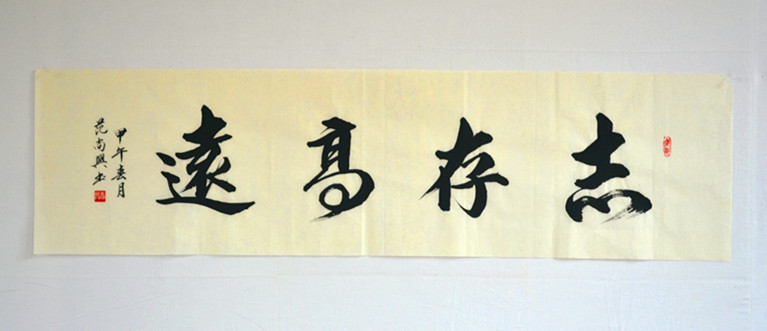 志存高遠
甲午春月
范尚興书